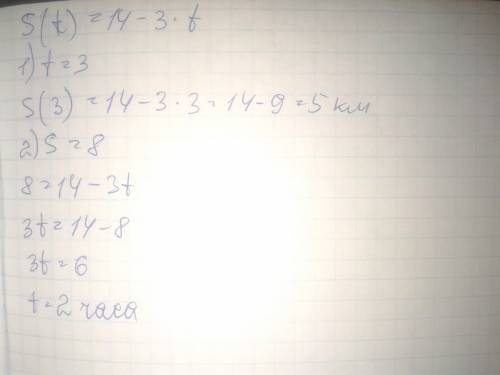 S(t) = 14 - 3 · t
1) t = 3
S(3) = 14 - 3 · 3 = 14 - 9 = 5 км
2) S = 8
8 = 14 - 3t
3t = 14 - 8
3t = 6
t = 2 часа